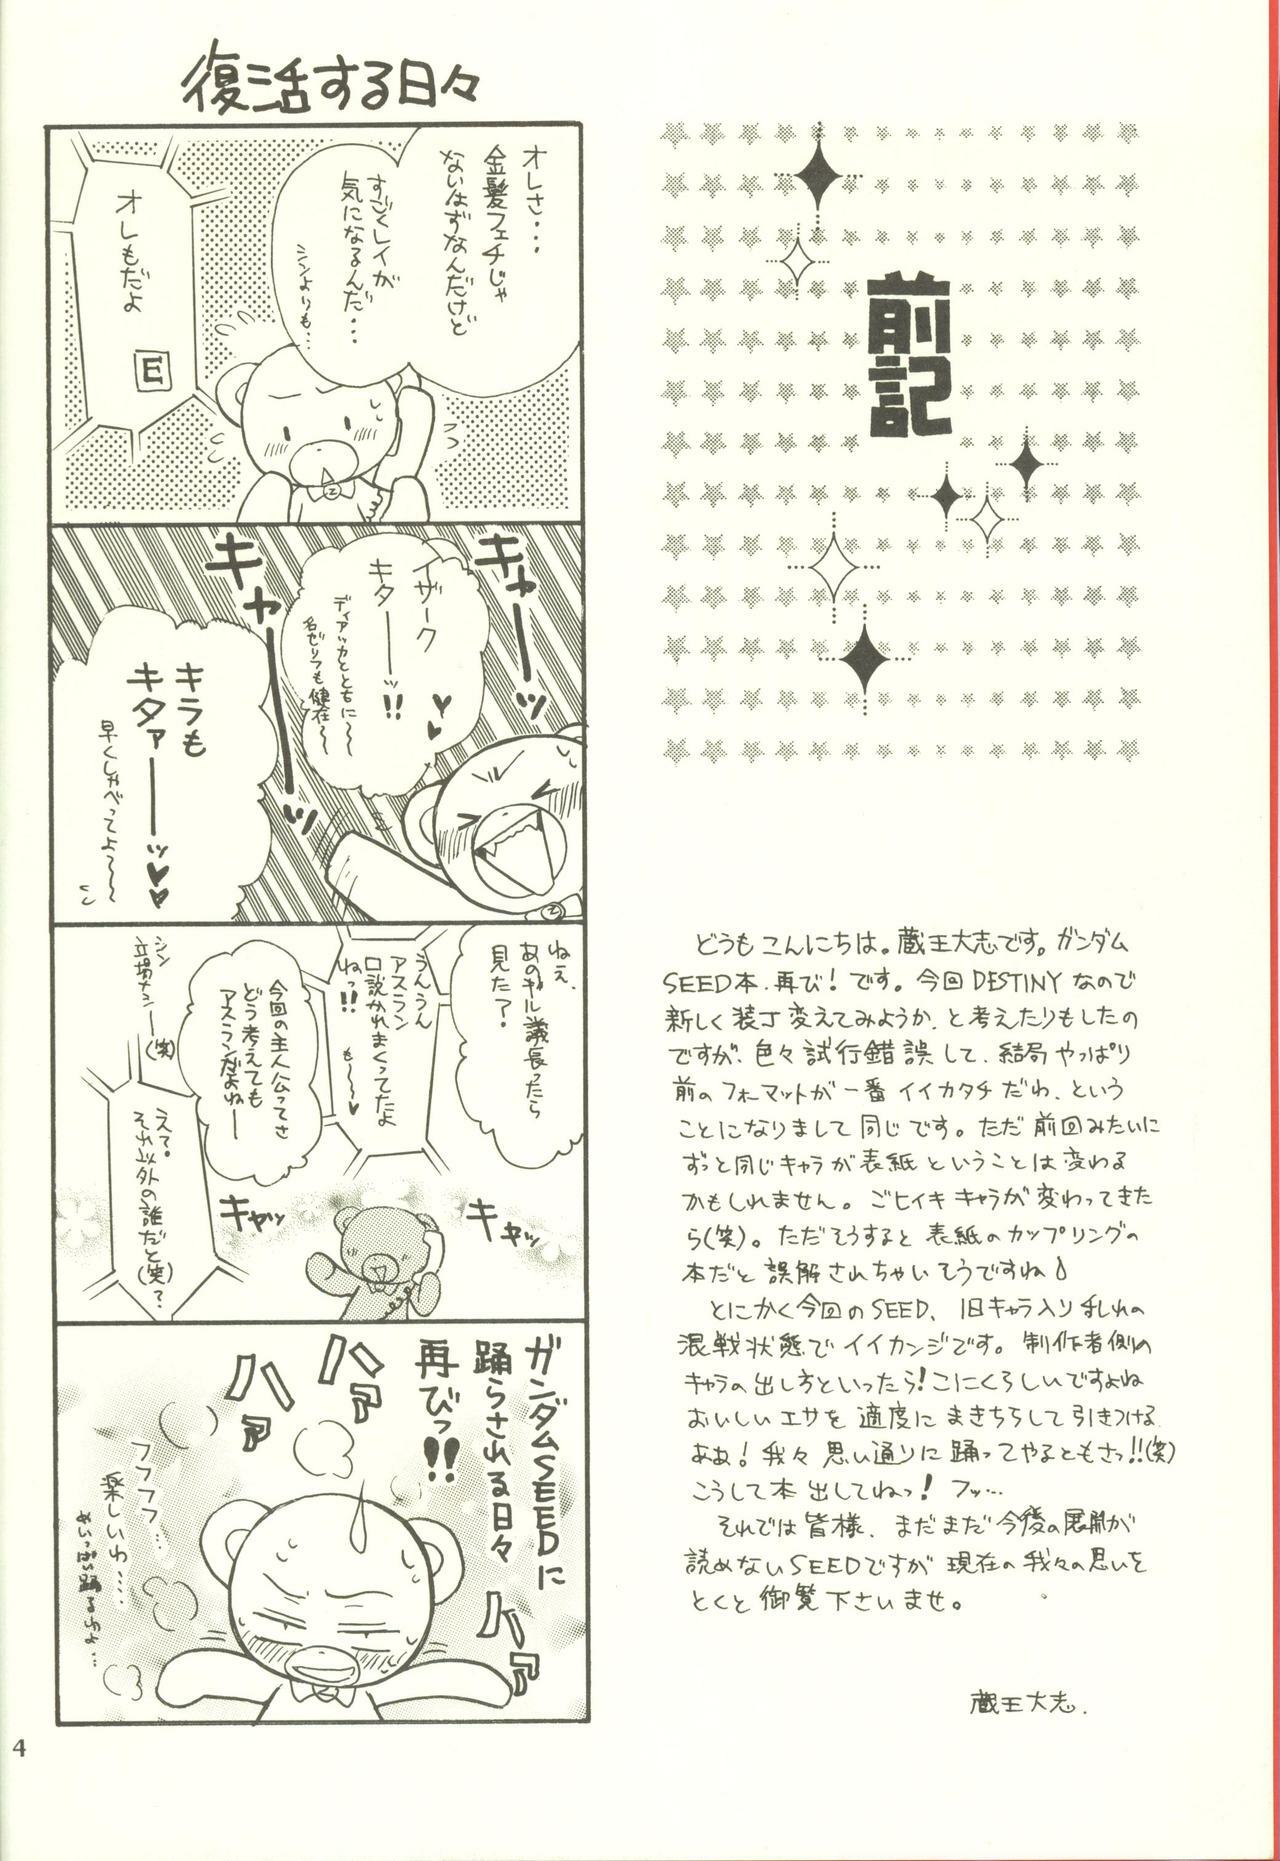 前記
どうもこんにちは。蔵王大志です。ガンダム
SEED本、再び!です。今回DESTINYなので
新しく装丁変えてみようか、と考えたりもしたの
ですが、色々試行錯誤して、結局やっぱり
前のフォーマットが一番イイカタチだわ、という
ことになりまして同じです。ただ前回みたいに
ずっと同じキャラが表紙ということは変わる
かもしれません。ごヒイキキャラが変わってきた
ら(笑)。ただそうすると表紙のカップリングの
本だと誤解されちゃいそうですね
とにかく今回のSEED、旧キャラ入り乱れの
混戦状態でイイカンジです。制作者側の
キャラの出し方といったら!こにくらしいですよね
おいしいエサを適度にまきちらして引きつける
ああ!我々思い通りに踊ってやるともさっ!!(笑)
こうして本出してねっ!フッ…
それでは皆様、まだまだ今後の展開が
読めないSEEDですが現在の我々の思いを
とくと御覧下さいませ。
蔵王大志.
復活する日々
オレさ・・・
金髪フェチじゃ
ないはずなんだけど
すごくレイが
気になるんだ・・・
シンよりも…
オレもだよ
E
キャーッ
イザーク
キターッ!!♥♥
ディアッカとともに〜
名ゼリフも健在〜
キャーッ
キラも
キタァーッ♥♥
早くしゃべってよ〜〜
ねえ、
あのギル議長ったら
見た?
うんうん
アスラン
口説かれまくってたよ
ねっ!!
も〜〜♥
今回の主人公ってさ
どう考えても
アスランだよねー
シン
立場ナシー(笑)
えて。
それ以外の誰だと(笑)?
キャッ
キャッ
ガンダムSEEDに
踊らされる日々
再びっ!!
ハァ
ハァ
ハァ
フフフフ…
楽しいわ・・・・
めいっぱい踊るわよ…
4